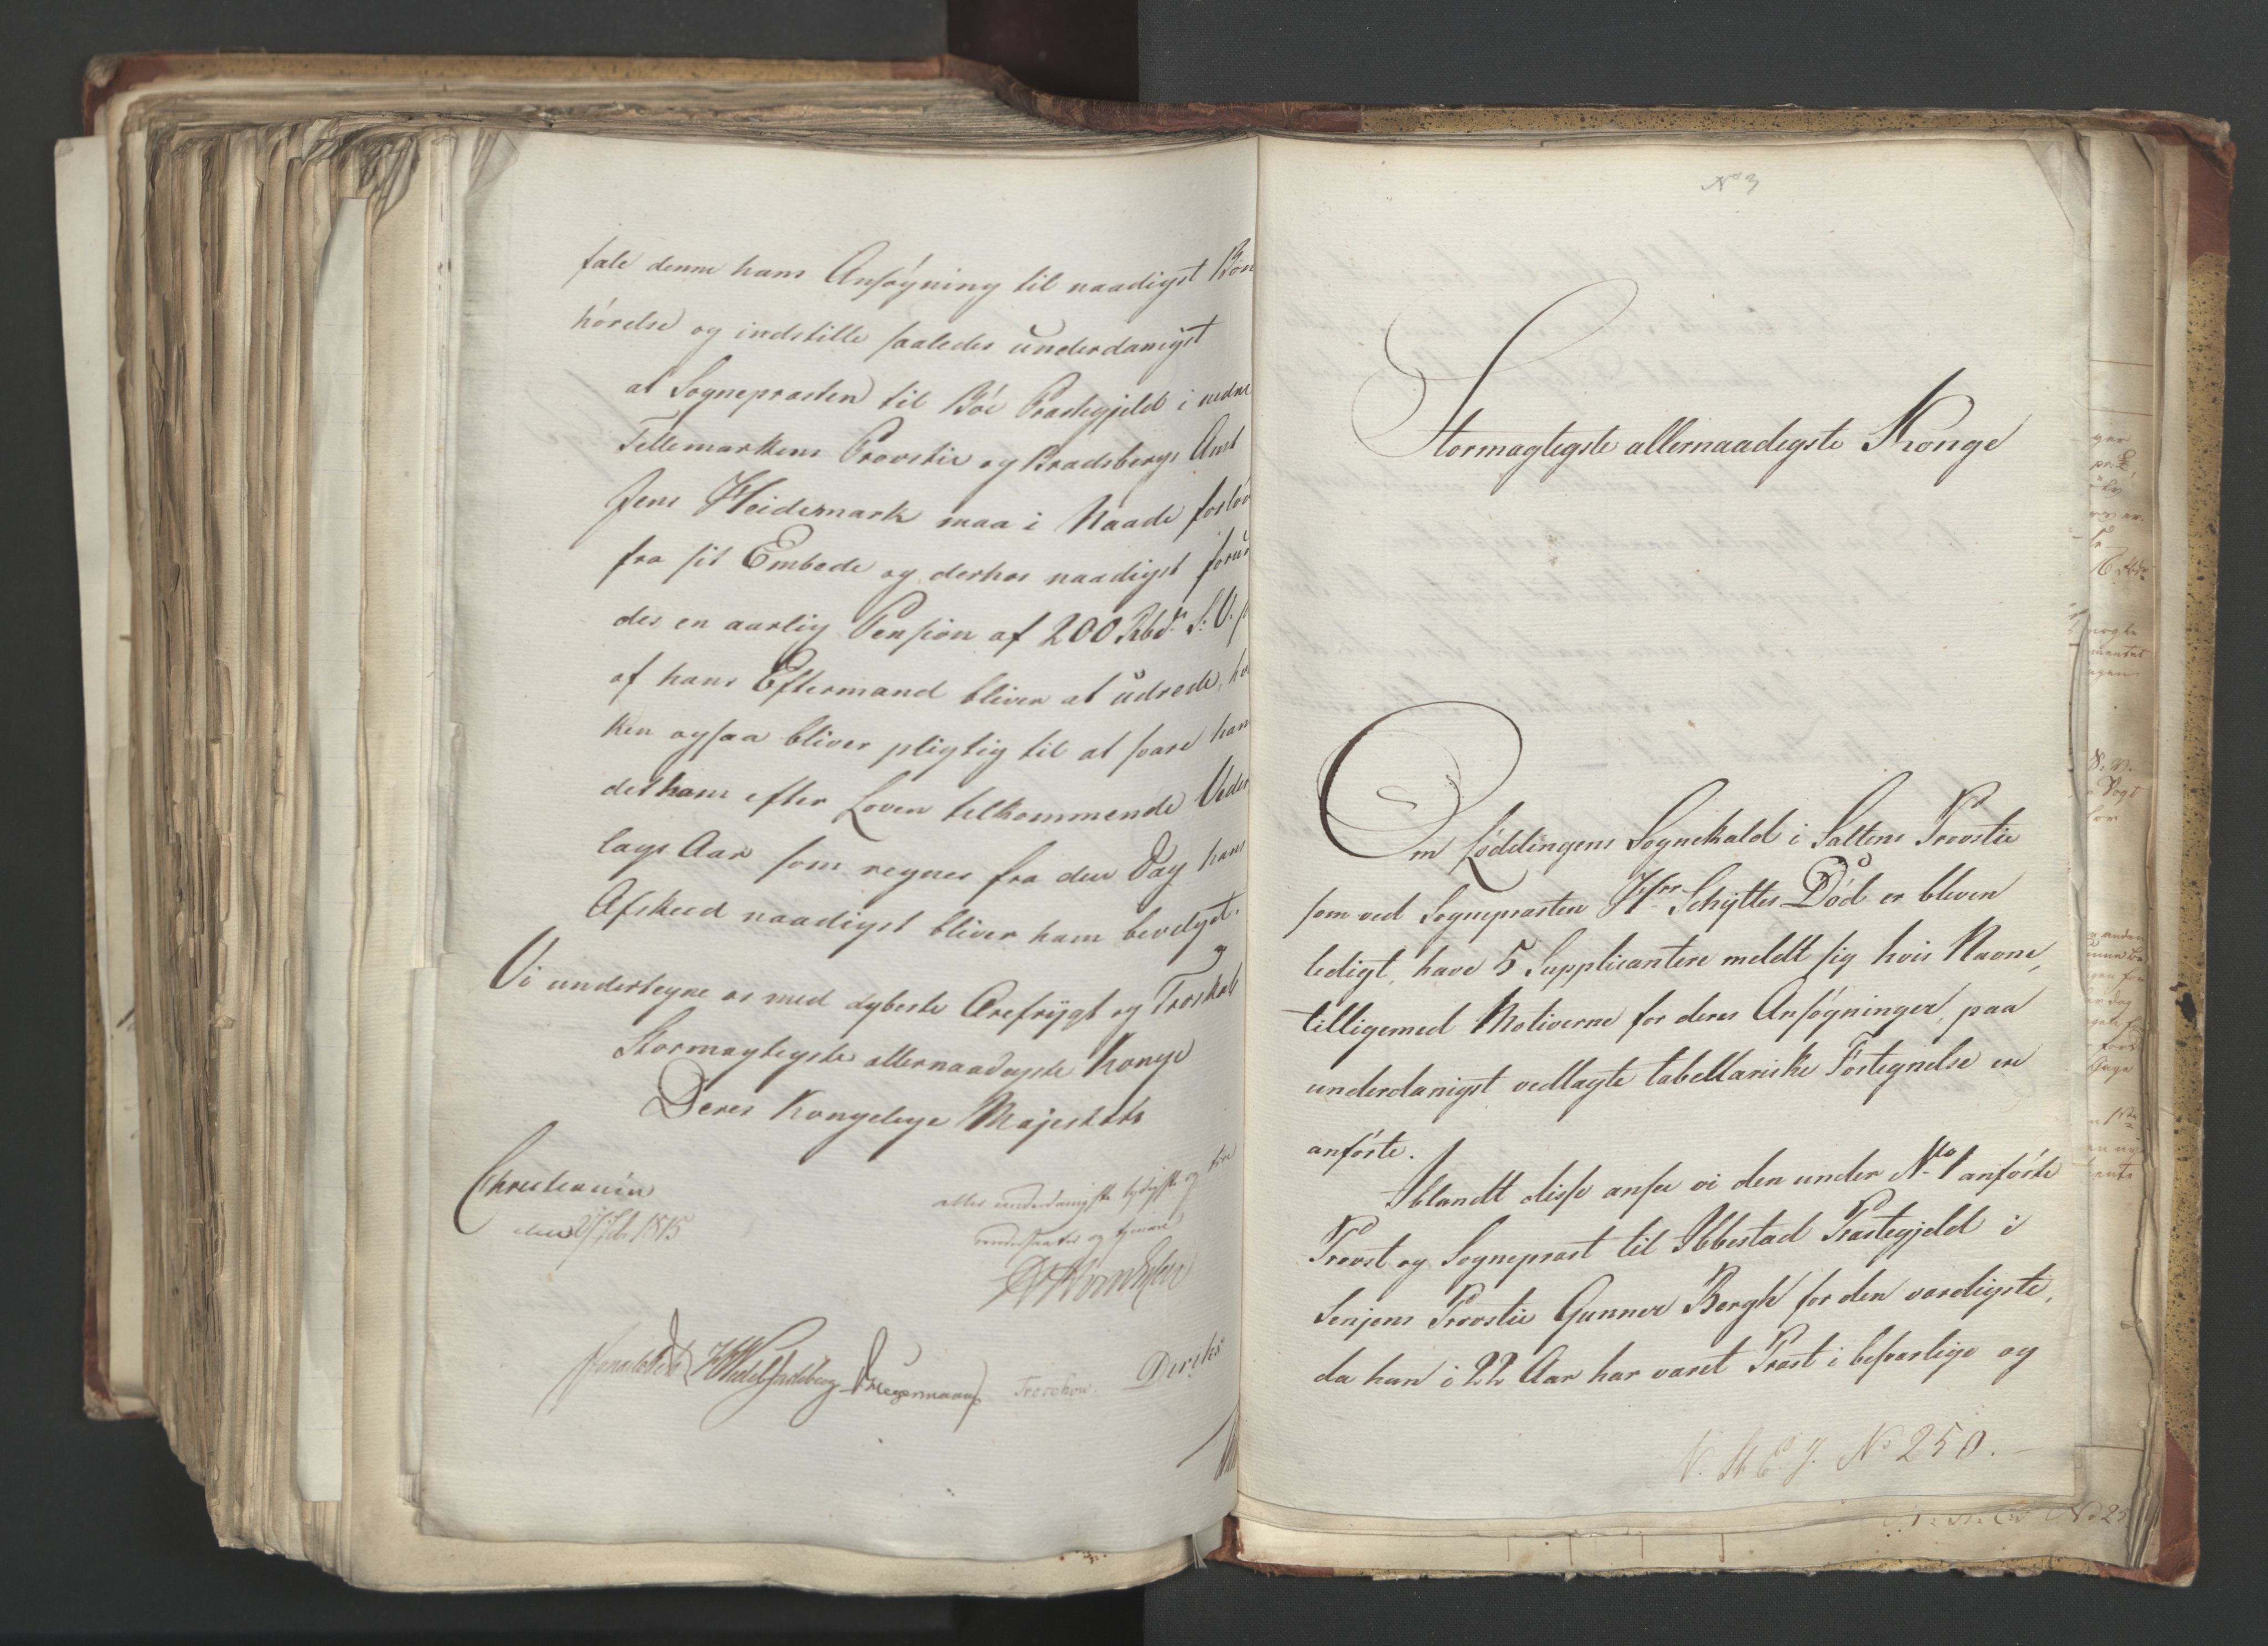 fale denne hans Ansøgning til naadigst Bøn
hørelse og indstille saaledes underdanigst
at Sognepræsten til Bøe Præstegjeld i nedre
Tellemarkens Provstie og Bradsbergs Amt
Jens Heidemark maa i Naade
fra sit Embede og derhos naadigst forun
des en aarlig Pension af 200 Rbd. S. V.
af hans Eftermand bliver at udrede, hvil
ken ogsaa bliver pligtig til at svare ham
det ham efter Loven tilkommende
lags Aar som regnes fra den Dag hans
Afskeed naadigst bliver ham bevilget.
Vi undertegne os med dybeste Ærefrygt og Troskab
Stormægtigste allernaadigste Konge
Deres Kongelige Majestæts
Christiania
den 27 Feb. 1815
aller underdanigste lydigste og
undersaatter og tjenere
F Wedel Jarlsberg Hegermann Treschow Diriks
No 3
Stormægtigste allernaadigste Konge
Om Løddingens Sognekald i Saltens Provstie
som ved Sognepræsten Hrr Schyttes Død er bleven
ledigt, have 5 Supplicantere meldt sig hvis Navne,
tilligemed Motiverne for deres Ansøgninger, paa
underdanigst vedlagte tabellariske Fortegnelse ere
anførte.
Iblandt disse ansee vi den under No 1 anførte
Provst og Sognepræst til Ibbestad Præstegjeld i
Senjens Provstie Gunner Bergh for den værdigste,
da han i 22 Aar har været Præst i besværlige og
N. St. E. J. No 250.